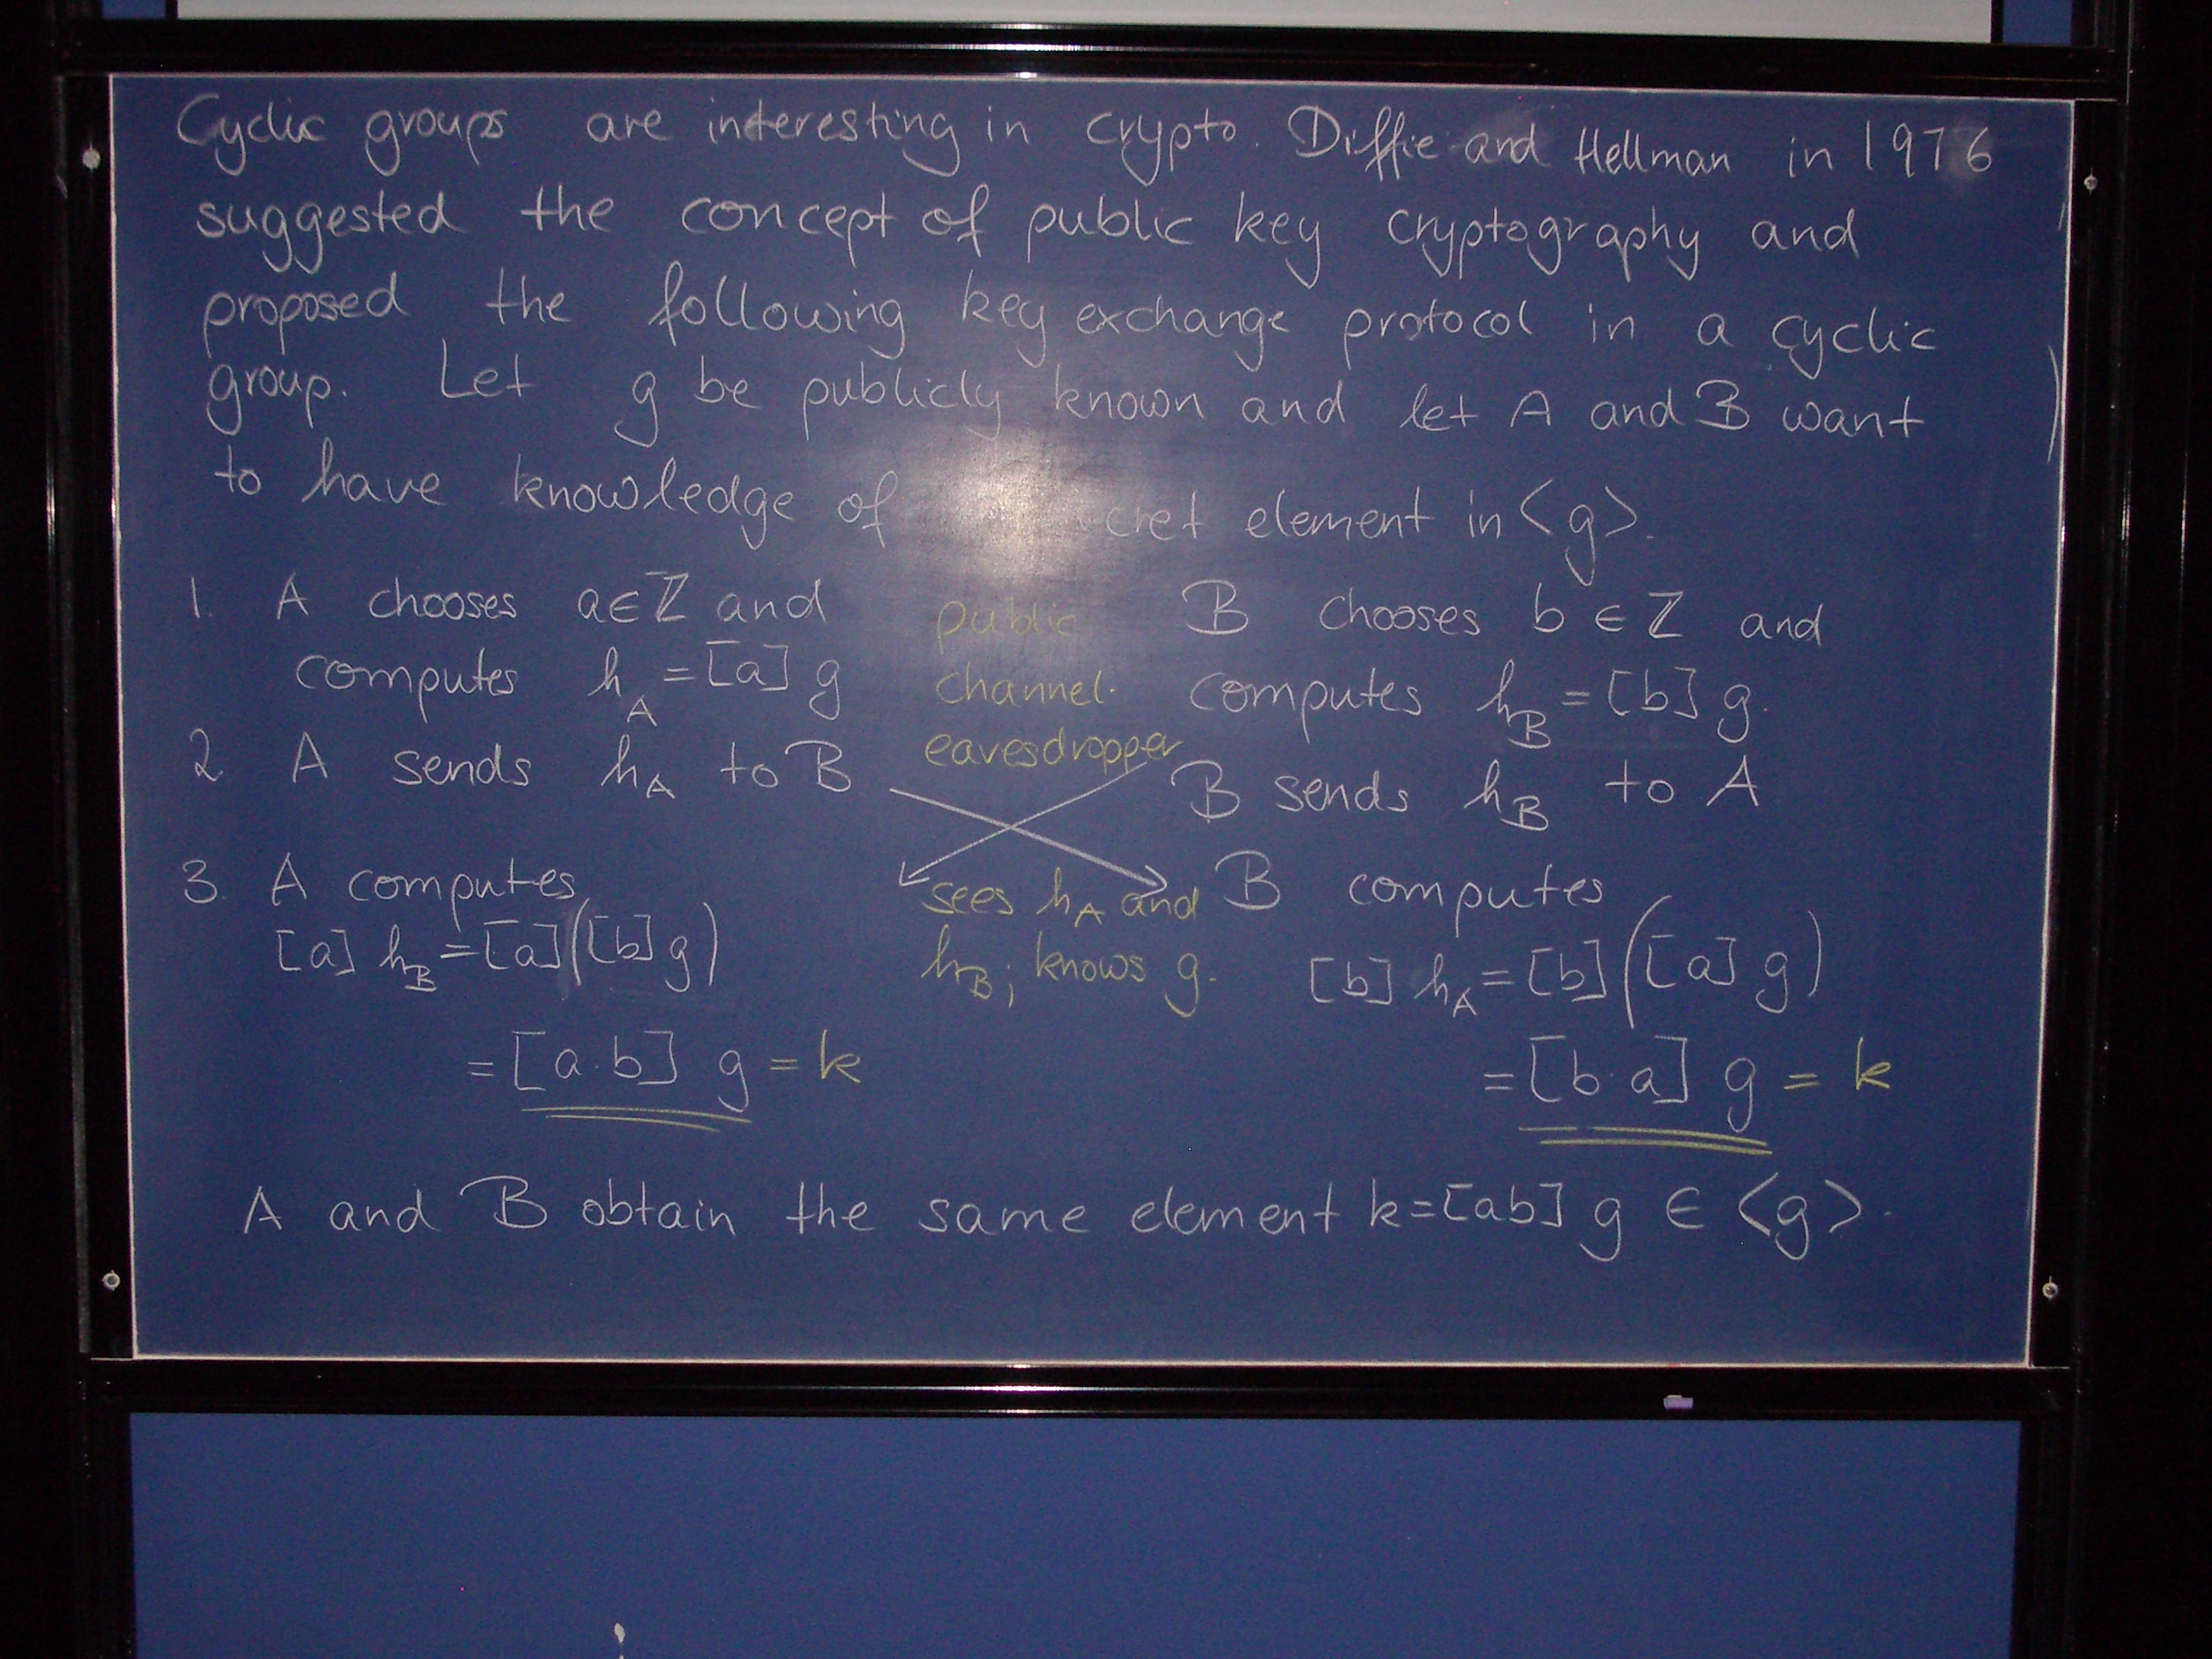 Cyclic groups are interesting in crypto. Diffie and Hellman in 1976
suggested the concept of public key cryptography and
proposed the following key exchange protocol in a cyclic
group. Let g be publicly known and let A and B want
to have knowledge of cret element in <g>.
1. A chooses a∈ℤ and
computes h_A = [a] g
2 A sends h_A to B
public
channel.
eavesdropper
B chooses b ∈ ℤ and
computes h_B = [b] g.
B sends h_B to A
3. A computes
[a] h_B = [a]([b] g)
= [a·b] g = k
sees h_A and
h_B; knows g.
B computes
[b] h_A = [b]([a] g)
= [b·a] g = k
A and B obtain the same element k=[ab] g ∈ <g>.